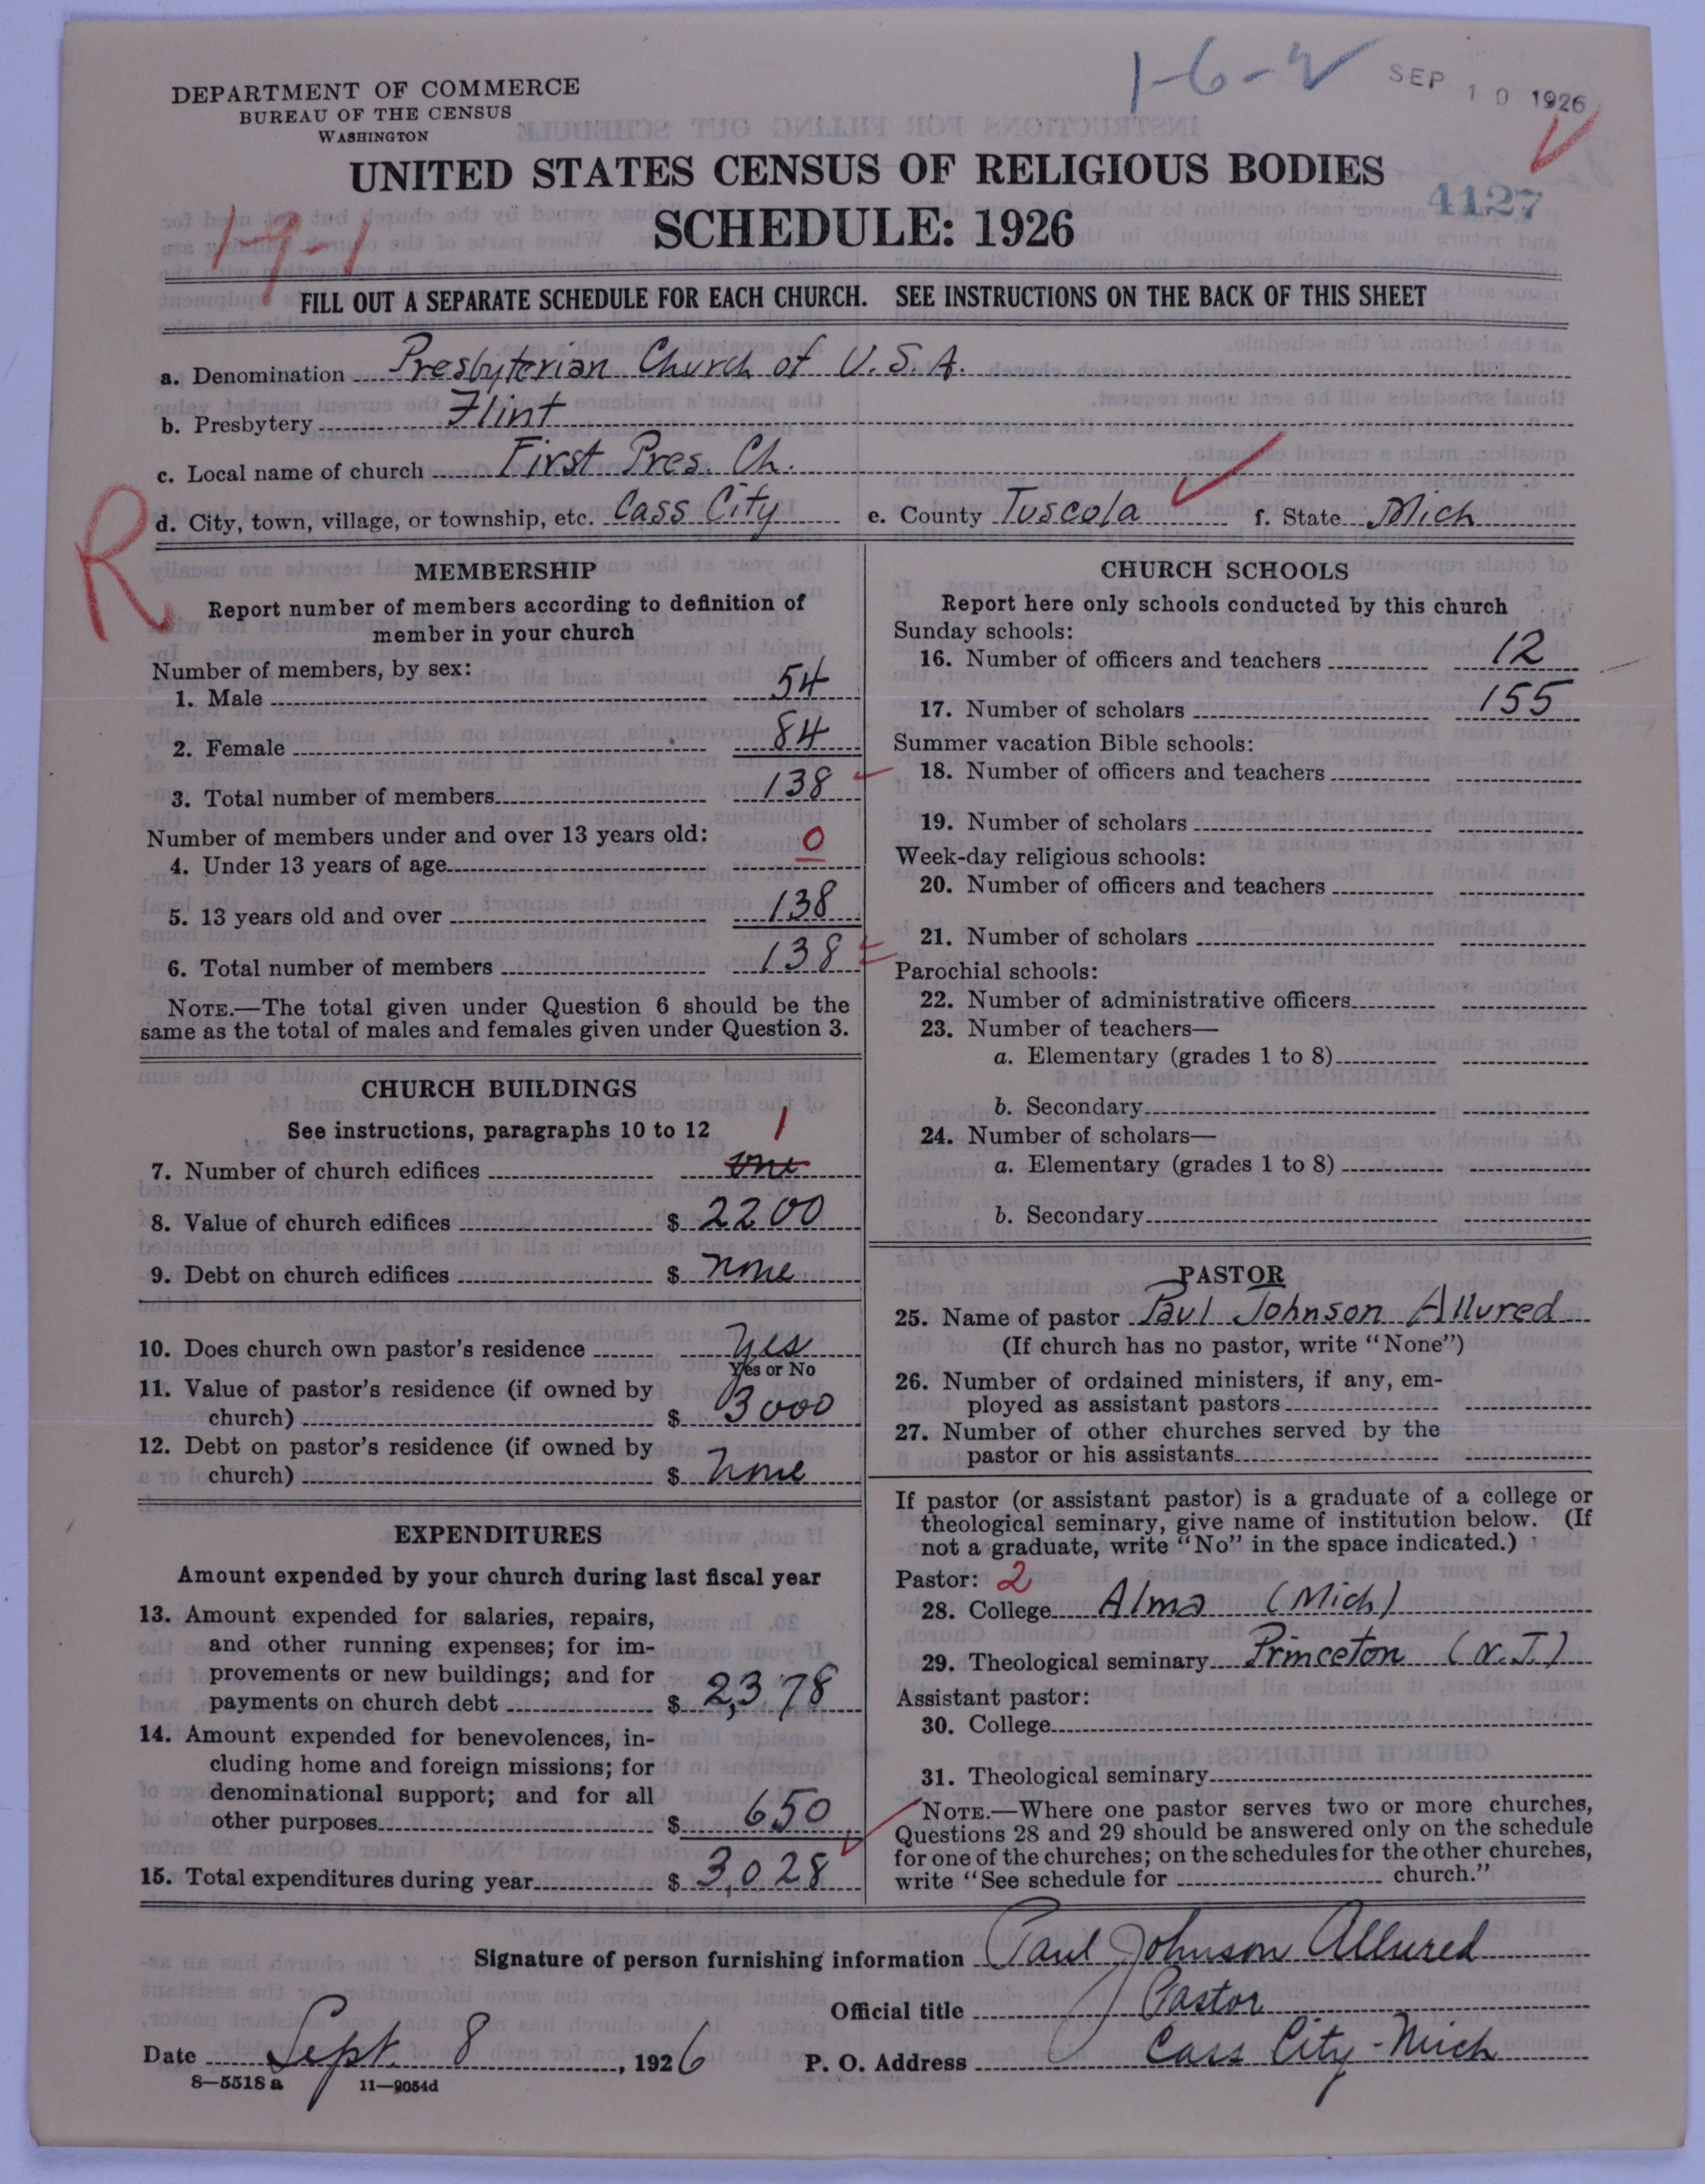 1-6-2
SEP 10 1926
DEPARTMENT OF COMMERCE
BUREAU OF THE CENSUS
WASHINGTON
UNITED STATES CENSUS OF RELIGIOUS BODIES
4127
SCHEDULE: 1926
19-1
FILL OUT A SEPARATE SCHEDULE FOR EACH CHURCH. SEE INSTRUCTIONS ON THE BACK OF THIS SHEET
a. Denomination Presbyterian Church of U.S.A.
b. Presbytery Flint
c. Local name of church First Pres. Ch.
R
d. City, town, village, or township, etc. Cass City e. County Tuscola f. State Mich
MEMBERSHIP
Report number of members according to definition of
member in your church
Number of members, by sex:
1. Male 54
2. Female 84
3. Total number of members 138
Number of members under and over 13 years old:
4. Under 13 years of age 0
5. 13 years old and over 138
6. Total number of members 138
NOTE.—The total given under Question 6 should be the
same as the total of males and females given under Question 3.
CHURCH BUILDINGS
See instructions, paragraphs 10 to 12
1
7. Number of church edifices one
8. Value of church edifices $ 2200
9. Debt on church edifices $ none
10. Does church own pastor's residence Yes
Yes or No
11. Value of pastor's residence (if owned by
church) $ 3000
12. Debt on pastor's residence (if owned by
church) $ none
EXPENDITURES
Amount expended by your church during last fiscal year
13. Amount expended for salaries, repairs,
and other running expenses; for im-
provements or new buildings; and for
payments on church debt $ 2,378
14. Amount expended for benevolences, in-
cluding home and foreign missions; for
denominational support; and for all
other purposes $ 650
15. Total expenditures during year $ 3,028
CHURCH SCHOOLS
Report here only schools conducted by this church
Sunday schools:
16. Number of officers and teachers 12
17. Number of scholars 155
Summer vacation Bible schools:
18. Number of officers and teachers
19. Number of scholars
Week-day religious schools:
20. Number of officers and teachers
21. Number of scholars
Parochial schools:
22. Number of administrative officers
23. Number of teachers—
a. Elementary (grades 1 to 8)
b. Secondary
24. Number of scholars—
a. Elementary (grades 1 to 8)
b. Secondary
PASTOR
25. Name of pastor Paul Johnson Allured
(If church has no pastor, write "None")
26. Number of ordained ministers, if any, em-
ployed as assistant pastors
27. Number of other churches served by the
pastor or his assistants
If pastor (or assistant pastor) is a graduate of a college or
theological seminary, give name of institution below. (If
not a graduate, write "No" in the space indicated.)
Pastor: 2
28. College Alma (Mich)
29. Theological seminary Princeton (N.J.)
Assistant pastor:
30. College
31. Theological seminary
NOTE.—Where one pastor serves two or more churches,
Questions 28 and 29 should be answered only on the schedule
for one of the churches; on the schedules for the other churches,
write "See schedule for church."
Signature of person furnishing information Paul Johnson Allured
Official title Pastor
Date Sept. 8, 1926 P. O. Address Cass City - Mich
8—5518 a 11—9054d